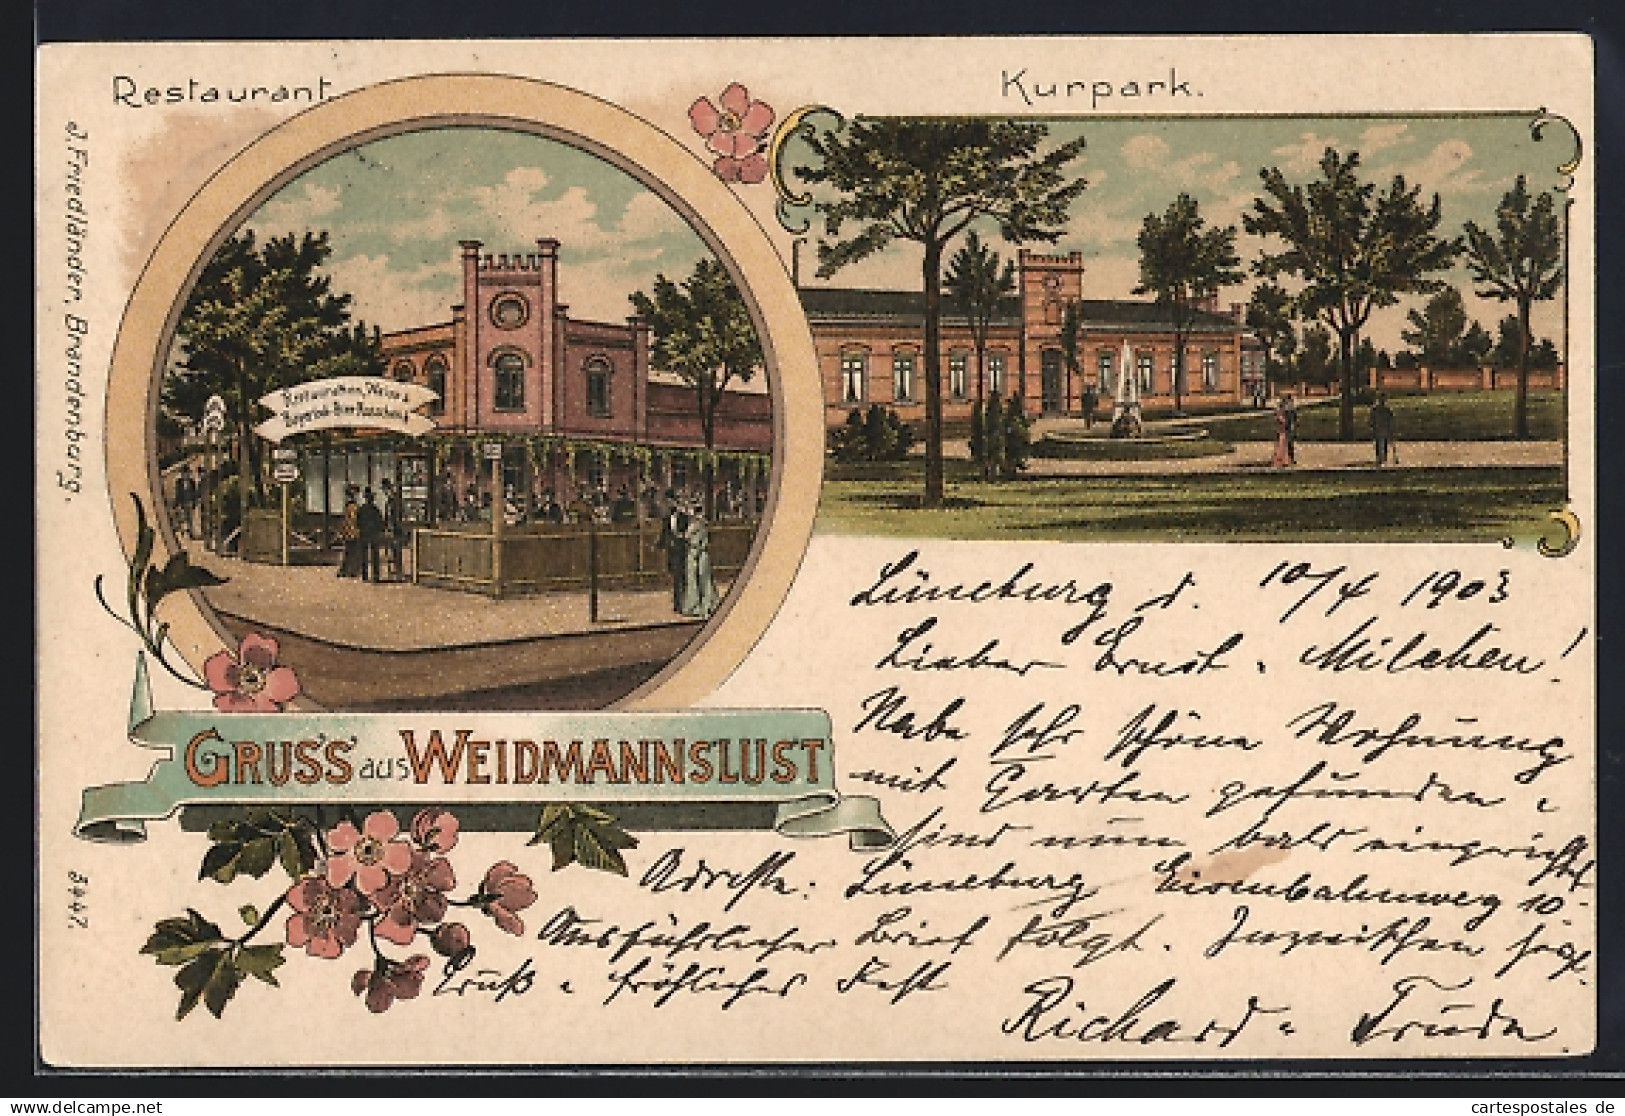 Restaurant.
Kurpark.
J. Friedländer, Brandenburg.
Restauration, Weiss &
Bayrisch-Bier Ausschank
GRUSS aus WEIDMANNSLUST
3447.
Lüneburg d. 10/4 1903
Lieber Ernst u. Milchen!
Habe sehr schöne Wohnung
mit Garten gefunden u
sind nun bald eingerichtet
Adresse: Lüneburg Eisenbahnweg 10.
Ausführlicher Brief folgt. Inzwischen herzl.
Gruß u fröhliches Fest
Richard u Trude
cartespostales de